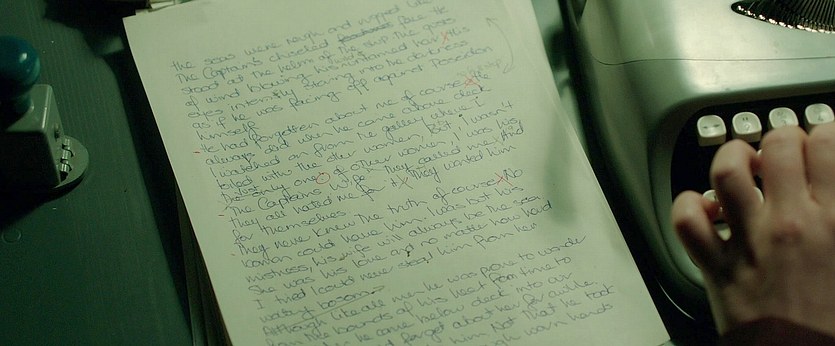 the seas were rough and rugged like
The Captains cheeked face. He
stood at the helm of the ship the gusts
of wind blowing his untamed hair this
eyes intently staring into the darkness
as if he was facing off against Poseidon
himself.
He had forgotten about me of course. He
always did when he came above deck
I watched on from the galley where I
toiled with the other women, but I wasn't
one of other women, I was his
The Captains Wife. They called me. And
They all hated me for it. They wanted him
for themselves.
They never knew the truth of course. No
woman could have him. I was but his
mistress, his wife will always be the sea
She was his love and no matter how hard
I tried I could never steal him from her
watery bosom.
Although like all men he was prone to wonder
from the bounds of his heart from time to
he came below deck into our
forget about her for awhile
him. Not that he took
warn hands